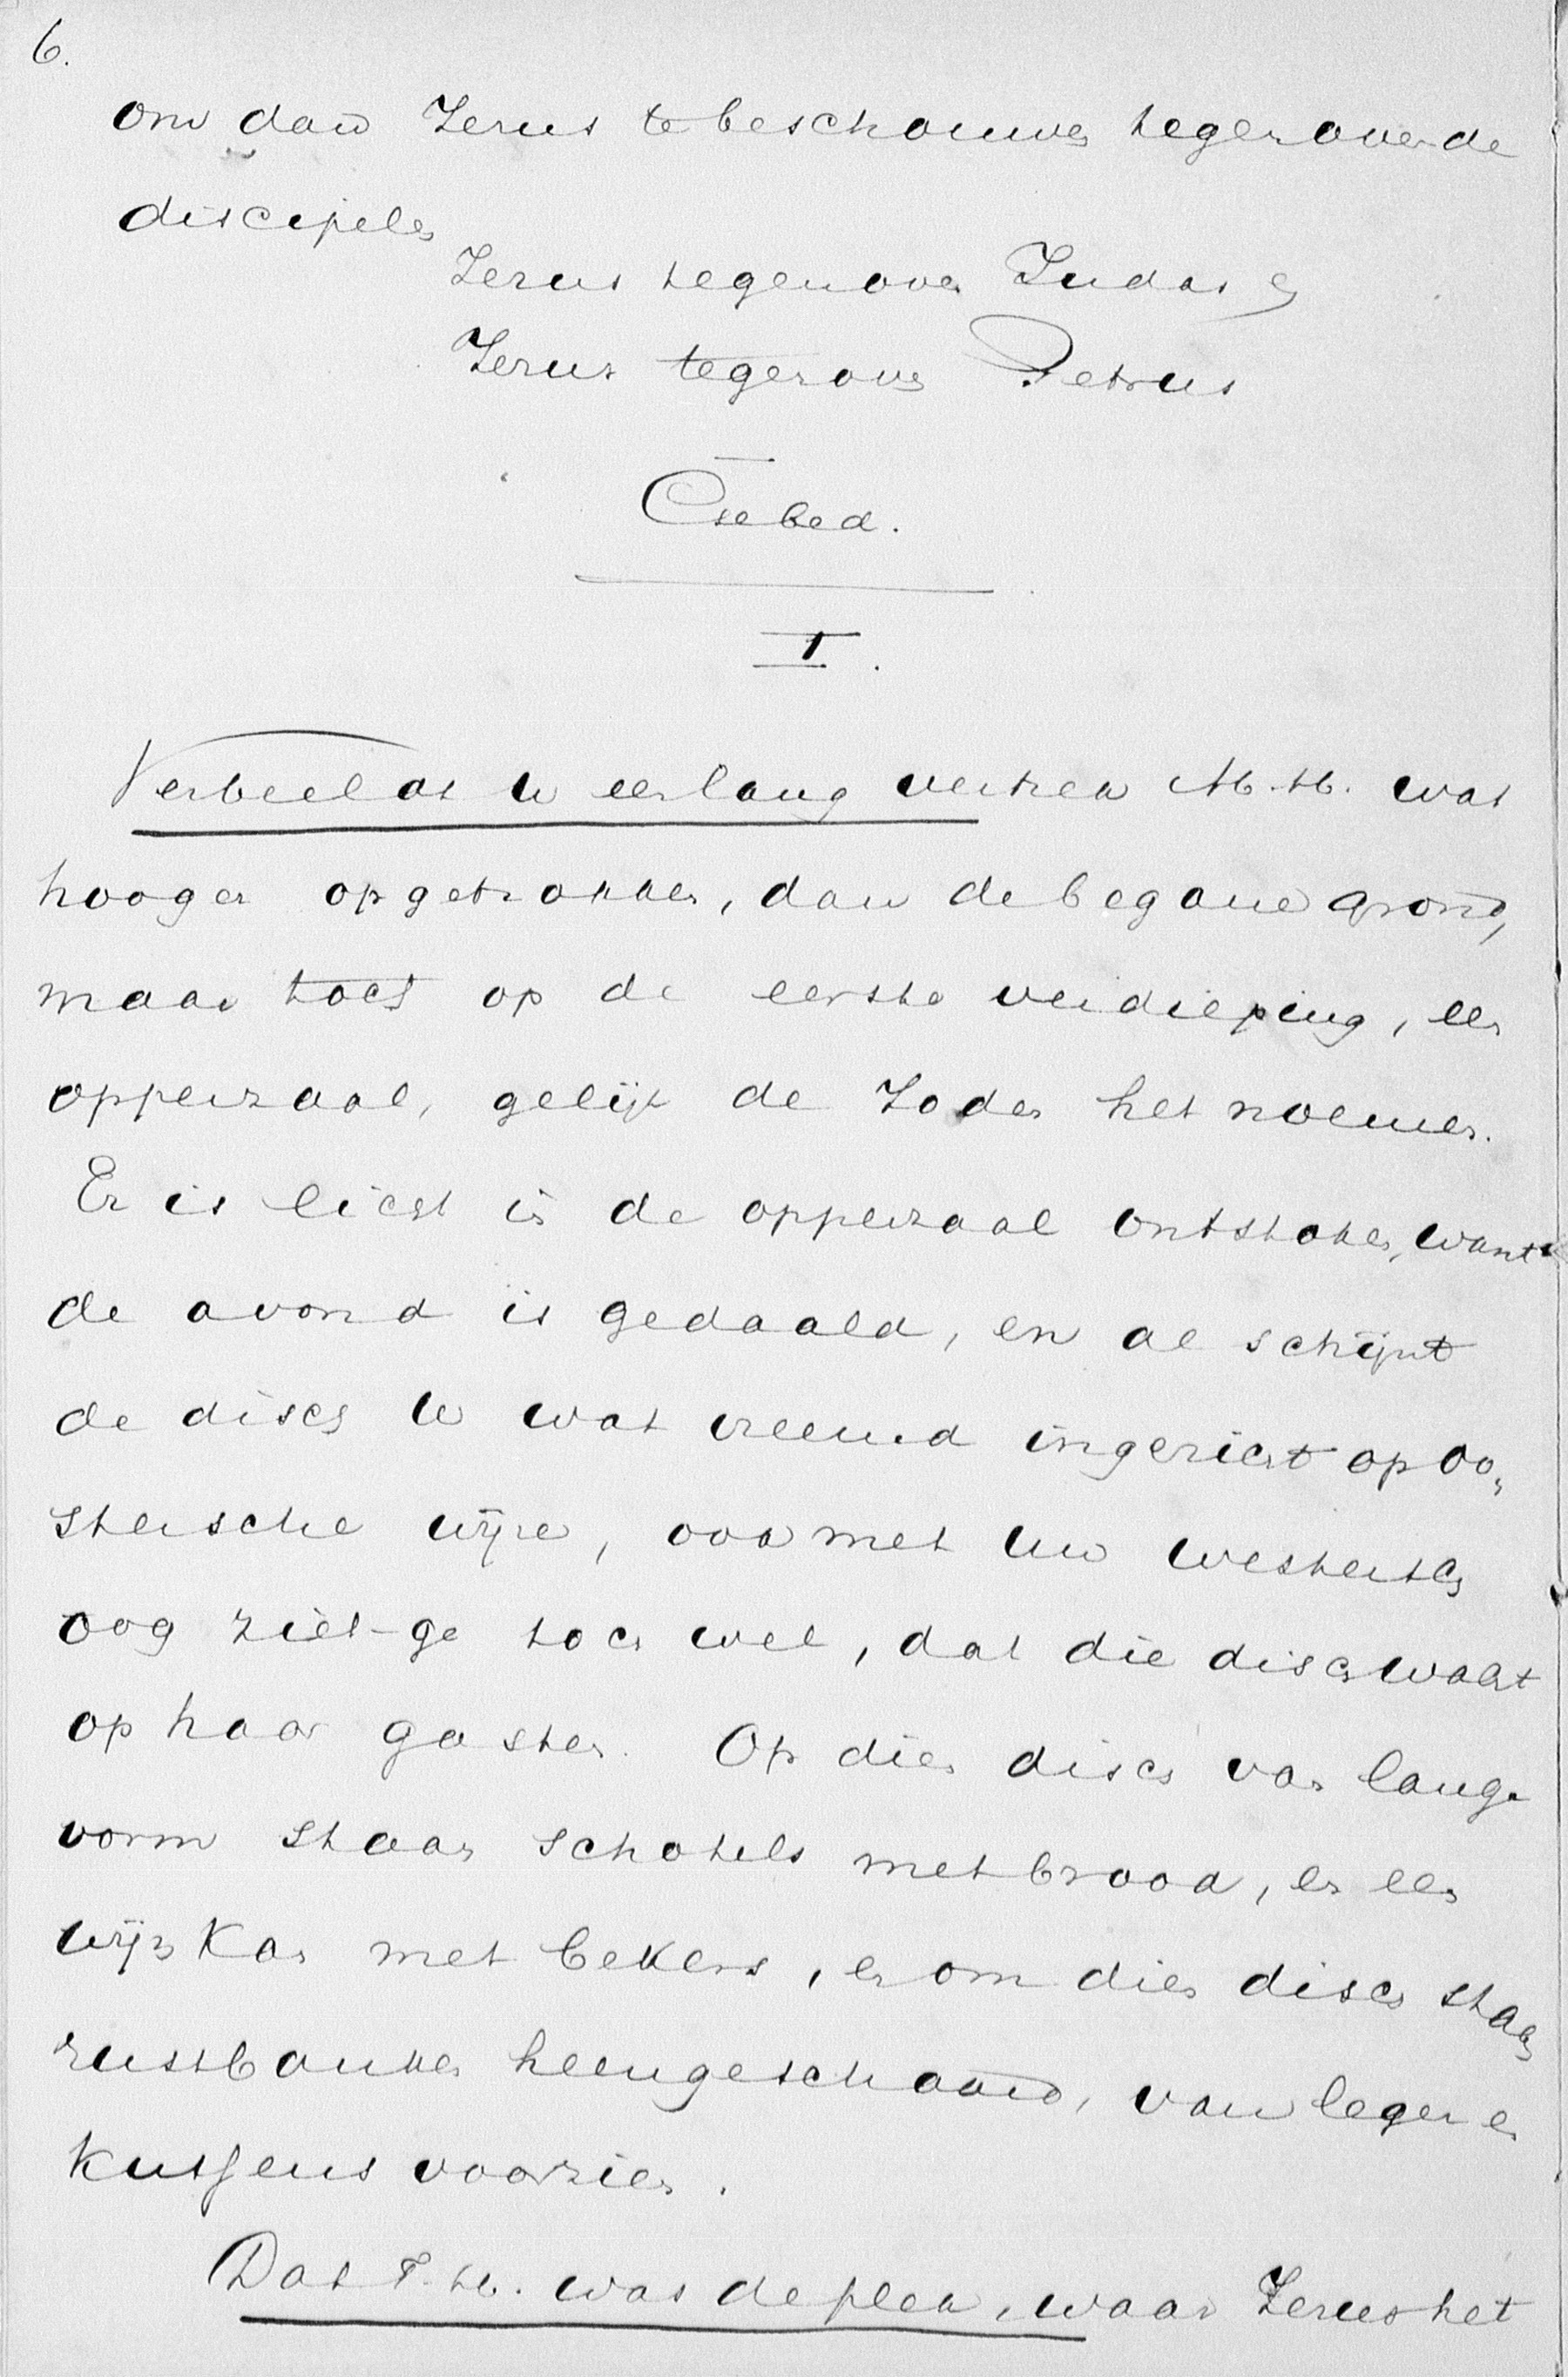 6.
om dan Jezus te beschouwen tegenover de
discipelen
Jezus tegenover Judas en
Jezus tegenover Petrus
Gebed.
I.
Verbeeldt U een lang vertrek M.H. wat
hooger opgetrokken, dan de begane grond,
maar toch op de eerste verdieping, een
opperzaal, gelijk de Joden het noemen.
Er is licht in de opperzaal ontstoken, want
de avond is gedaald, en al schijnt
de disch U wat vreemd ingericht op oo„
stersche wijze, ook met uw westersch
oog ziet-ge toch wel, dat die disch wacht
op haar gasten. Op dien disch van lange
vorm staan schotels met brood, en een
wijnkan met bekers, en om dien disch staan
rustbanken heengeschaard, van leger en
kussens voorzien.
Dat T.H. was de plek, waar Jezus het